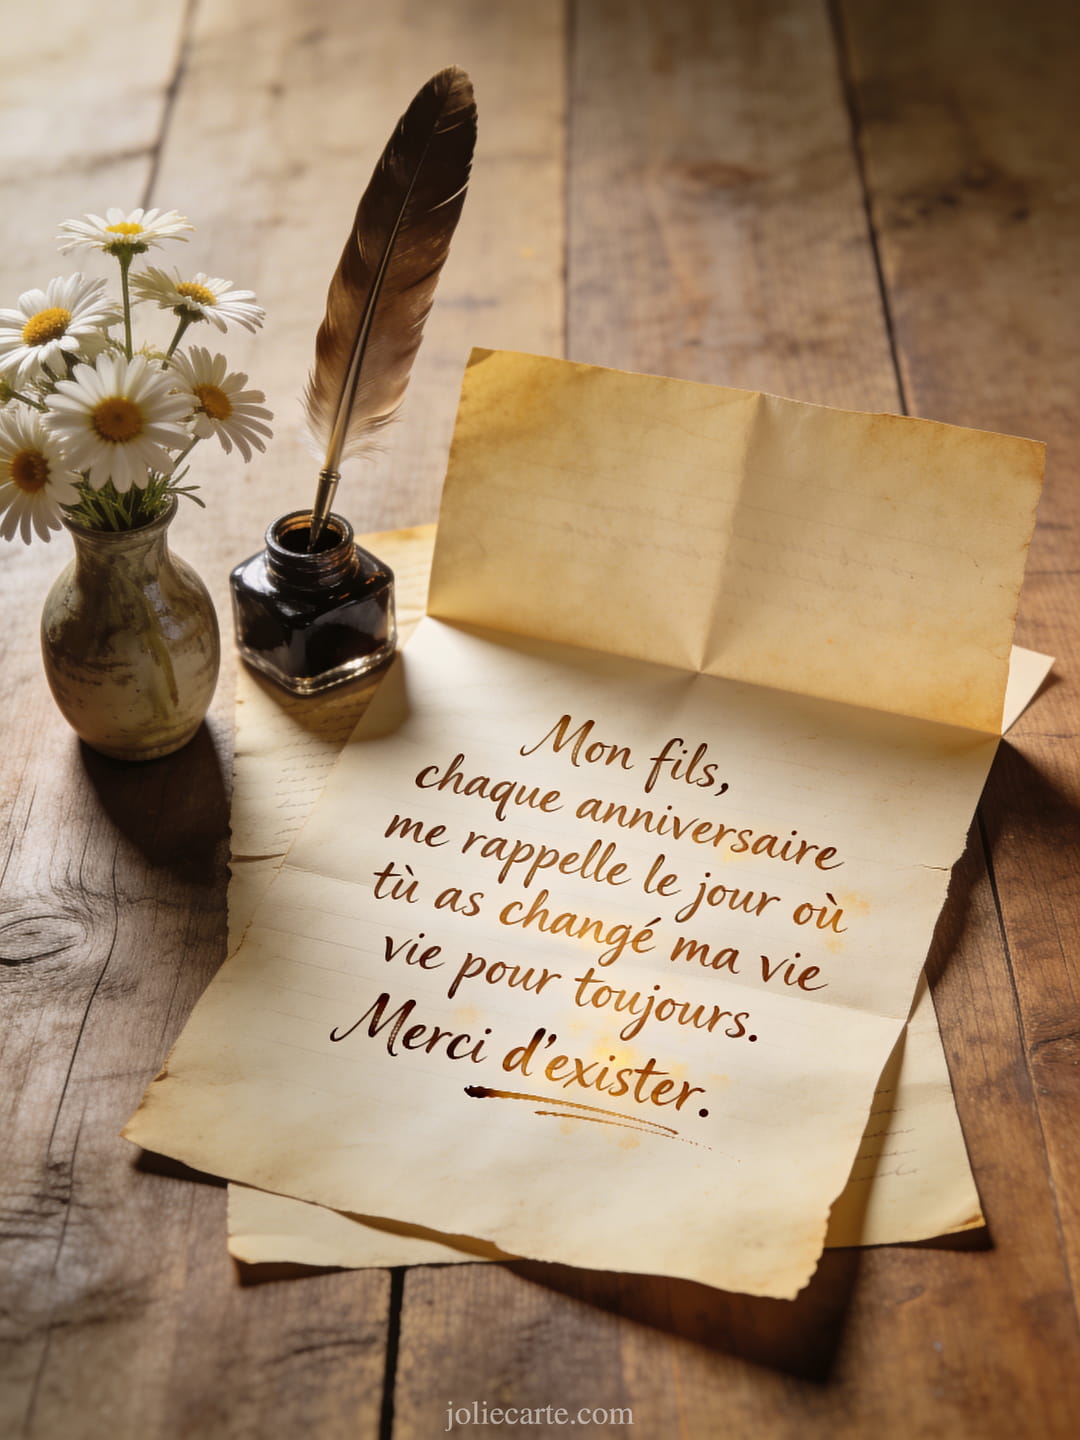 Mon fils,
chaque anniversaire
me rappelle le jour où
tù as changé ma vie
vie pour toujours.
Merci d'exister.
joliecarte.com